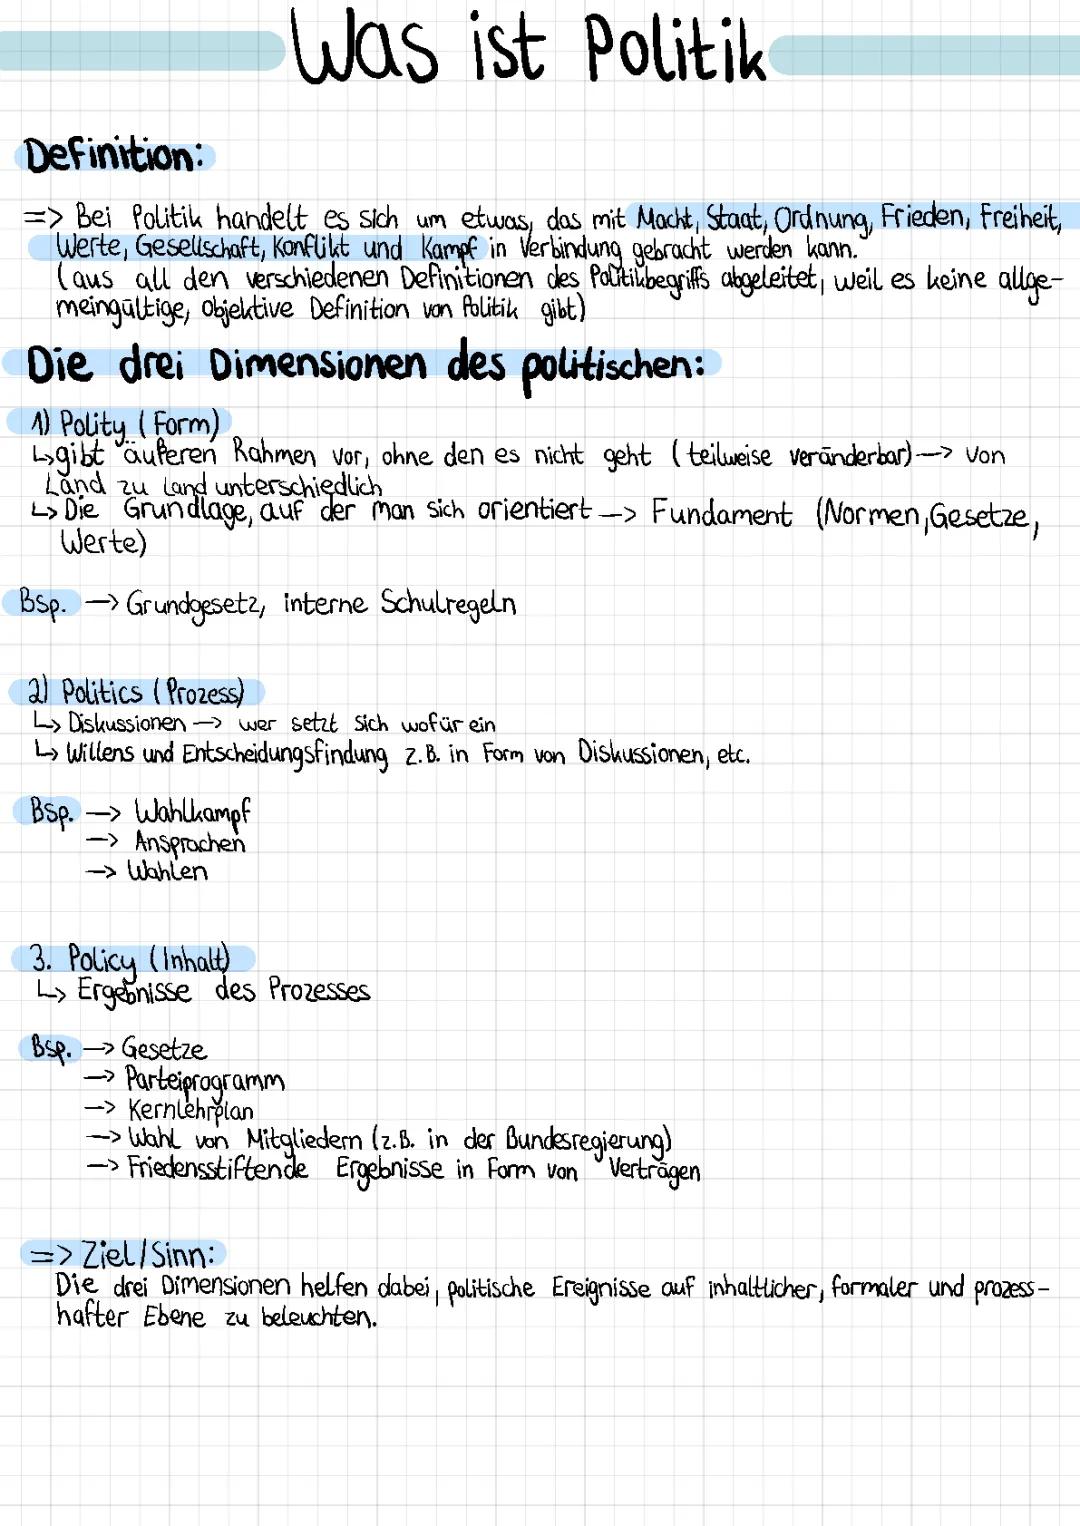 Was ist Politik
Definition:
=> Bei Politik handelt es sich um etwas, das mit Macht, Staat, Ordnung, Frieden, Freiheit,
Werte, Gesellschaft, Konflikt und Kampf in Verbindung gebracht werden kann.
(aus all den verschiedenen Definitionen des Politikbegriffs abgeleitet, weil es keine allge-
meingültige, objektive Definition von Politik gibt)
Die drei Dimensionen des politischen:
1) Polity (Form)
↳ gibt äußeren Rahmen vor, ohne den es nicht geht (teilweise veränderbar) —> von
Land zu Land unterschiedlich
↳ Die Grundlage, auf der man sich orientiert —> Fundament (Normen, Gesetze,
Werte)
Bsp. —> Grundgesetz, interne Schulregeln
2) Politics (Prozess)
↳ Diskussionen —> wer setzt sich wofür ein
↳ Willens und Entscheidungsfindung z.B. in Form von Diskussionen, etc.
Bsp. —> Wahlkampf
—> Ansprachen
—> Wahlen
3. Policy (Inhalt)
↳ Ergebnisse des Prozesses
Bsp. —> Gesetze
—> Parteiprogramm
—> Kernlehrplan
—> Wahl von Mitgliedern (z.B. in der Bundesregierung)
—> Friedensstiftende Ergebnisse in Form von Verträgen
=> Ziel/Sinn:
Die drei Dimensionen helfen dabei, politische Ereignisse auf inhaltlicher, formaler und prozess-
hafter Ebene zu beleuchten.